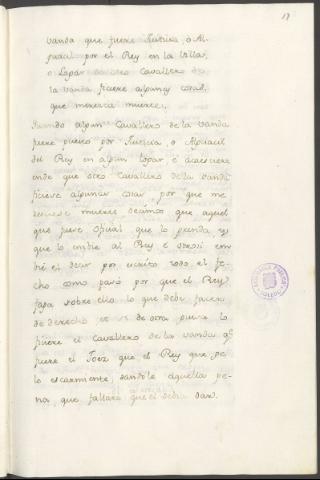 17
vanda que fuere Justicia o Al-
guacil por el Rey en la Villa,
o Lugar do otro Cavallero de
la vanda ficiere algunas cosas,
que merezca muerte.
Quando algun Cavallero de la vanda
fuere puesto por Justicia, o Alguacil
del Rey en algun lugar è acaesciere
ende que otro Cavallero de la vanda
ficiese algunas cosas, por que me-
reciese muerte decimos que aquel
que fuere oficial que lo prenda y
que lo embie al Rey è
die el decir por escrito todo el fe-
cho como pasó por que el Rey
faga sobre ello lo que debe facer
de derecho et si de otra guisa lo
ficiere el Cavallero de la vanda q.
fuere el Juez que el Rey que ge
lo escarmiente, dandole aquella pe-
na, que fallare que el debia dar.